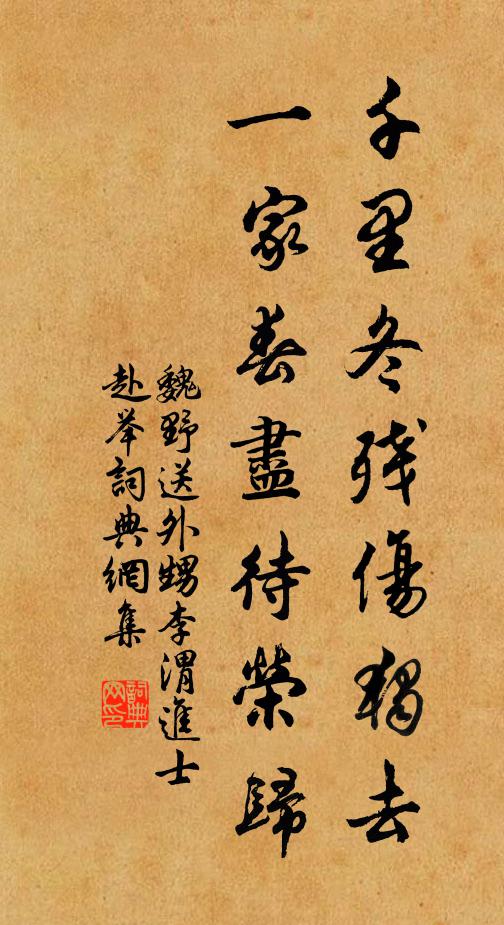 千里冬残傷獨去
一家春盡待榮歸
魏野送外甥李渭進士
赴举詞典網集
詞典网印